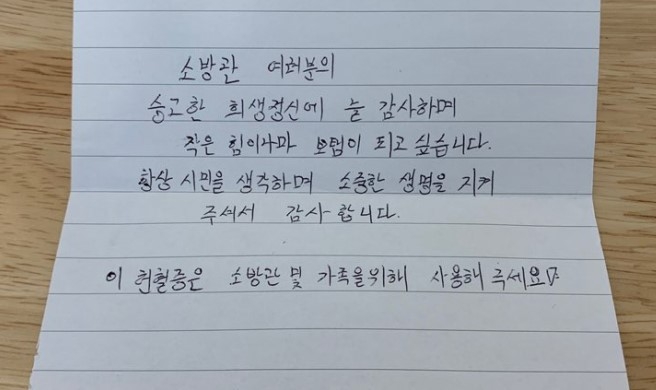 소방관 여러분의
숭고한 희생정신에 늘 감사하며
작은 힘이나마 보탬이 되고 싶습니다.
항상 시민을 생각하며 소중한 생명을 지켜
주셔서 감사합니다.
이 헌혈증은 소방관 및 가족을위해 사용해 주세요♡